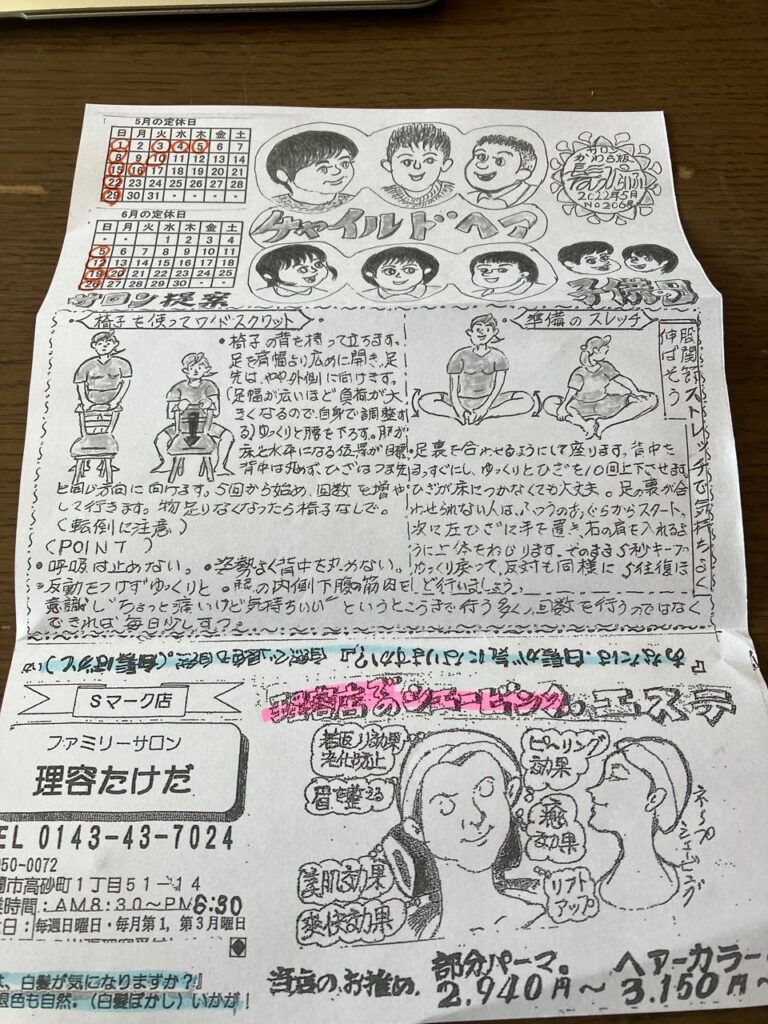 5月の定休日
日 月 火 水 木 金 土
1 2 3 4 5 6 7
8 9 10 11 12 13 14
15 16 17 18 19 20 21
22 23 24 25 26 27 28
29 30 31 ・ ・ ・ ・
6月の定休日
日 月 火 水 木 金 土
・ ・ ・ 1 2 3 4
5 6 7 8 9 10 11
12 13 14 15 16 17 18
19 20 21 22 23 24 25
26 27 28 29 30 ・ ・
チャイルドヘア
サロン
かわら版
2022年5月
No206号
サロン提案
椅子を使ってワイドスクワット
・椅子の背を持って立ちます。
足を肩幅より広めに開き、足
先は、やや外側に向けます。
(足幅が広いほど負荷が大
きくなるので自身で調整す
る)ゆっくりと腰を下ろす。
床と水平になる位置が目標
背中は丸めず、ひざはつま先
と同じ方向に向けます。5回から始め、回数を増や
して行きます。物足りなくなったら椅子なしで。
(転倒に注意)
(POINT)
・呼吸は止めない。・姿勢よく背中を丸めない。
・反動をつけずゆっくりと。・腿の内側下腹の筋肉を
意識し"ちょっと痛いけど気持ちいい"というところまで行う多く、回数を行うのではなく
できれば毎日少しずつ。
準備のスレッチ
股関節ストレッチで気持ちよく
伸ばそう
・足裏を合わせるようにして座ります。背中を
まっすぐにし、ゆっくりとひざを10回上下させます
ひざが床につかなくても大丈夫。足の裏が合
わせられない人は、ふつうのあぐらからスタート。
次に左ひざに手を置き、右の肩を入れるよ
うに上体をねじります。そのまま5秒キープ
ゆっくり戻って、反対も同様に5往復ほ
ど行いましょう。
『あなたは、白髪が気になりますか?』自然な退色も自然。(白髪ぼかし)
Sマーク店
ファミリーサロン
理容たけだ
EL 0143-43-7024
050-0072
蘭市高砂町1丁目51-14
業時間:AM8:30~PM6:30
日:毎週日曜日・毎月第1、第3月曜日
は、白髪が気になりますか?』
退色も自然。(白髪ぼかし)いかが!
理容店でのシェービング。エステ
若返り効果
老化防止
眉を整える
美肌効果
爽快効果
ピーリング
効果
癒し
効果
リフト
アップ
ネープ
シェービング
当店のお推め、部分パーマ。ヘアーカラー
2.940円~3.150円~